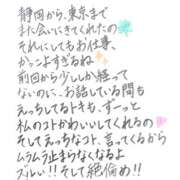 静岡から、東京まで
また会いにきてくれたの
それにしてもお仕事、
かっこよすぎるね
前回から少ししか経って
ないのに、お話している間も
えっちしてるトキも、ずーっと
私のコトかわいいしてくれるの
そしてえっちなコト、言ってくるから
ムラムラ止まらなくなるよ
ズルい!!そして絶倫め!!